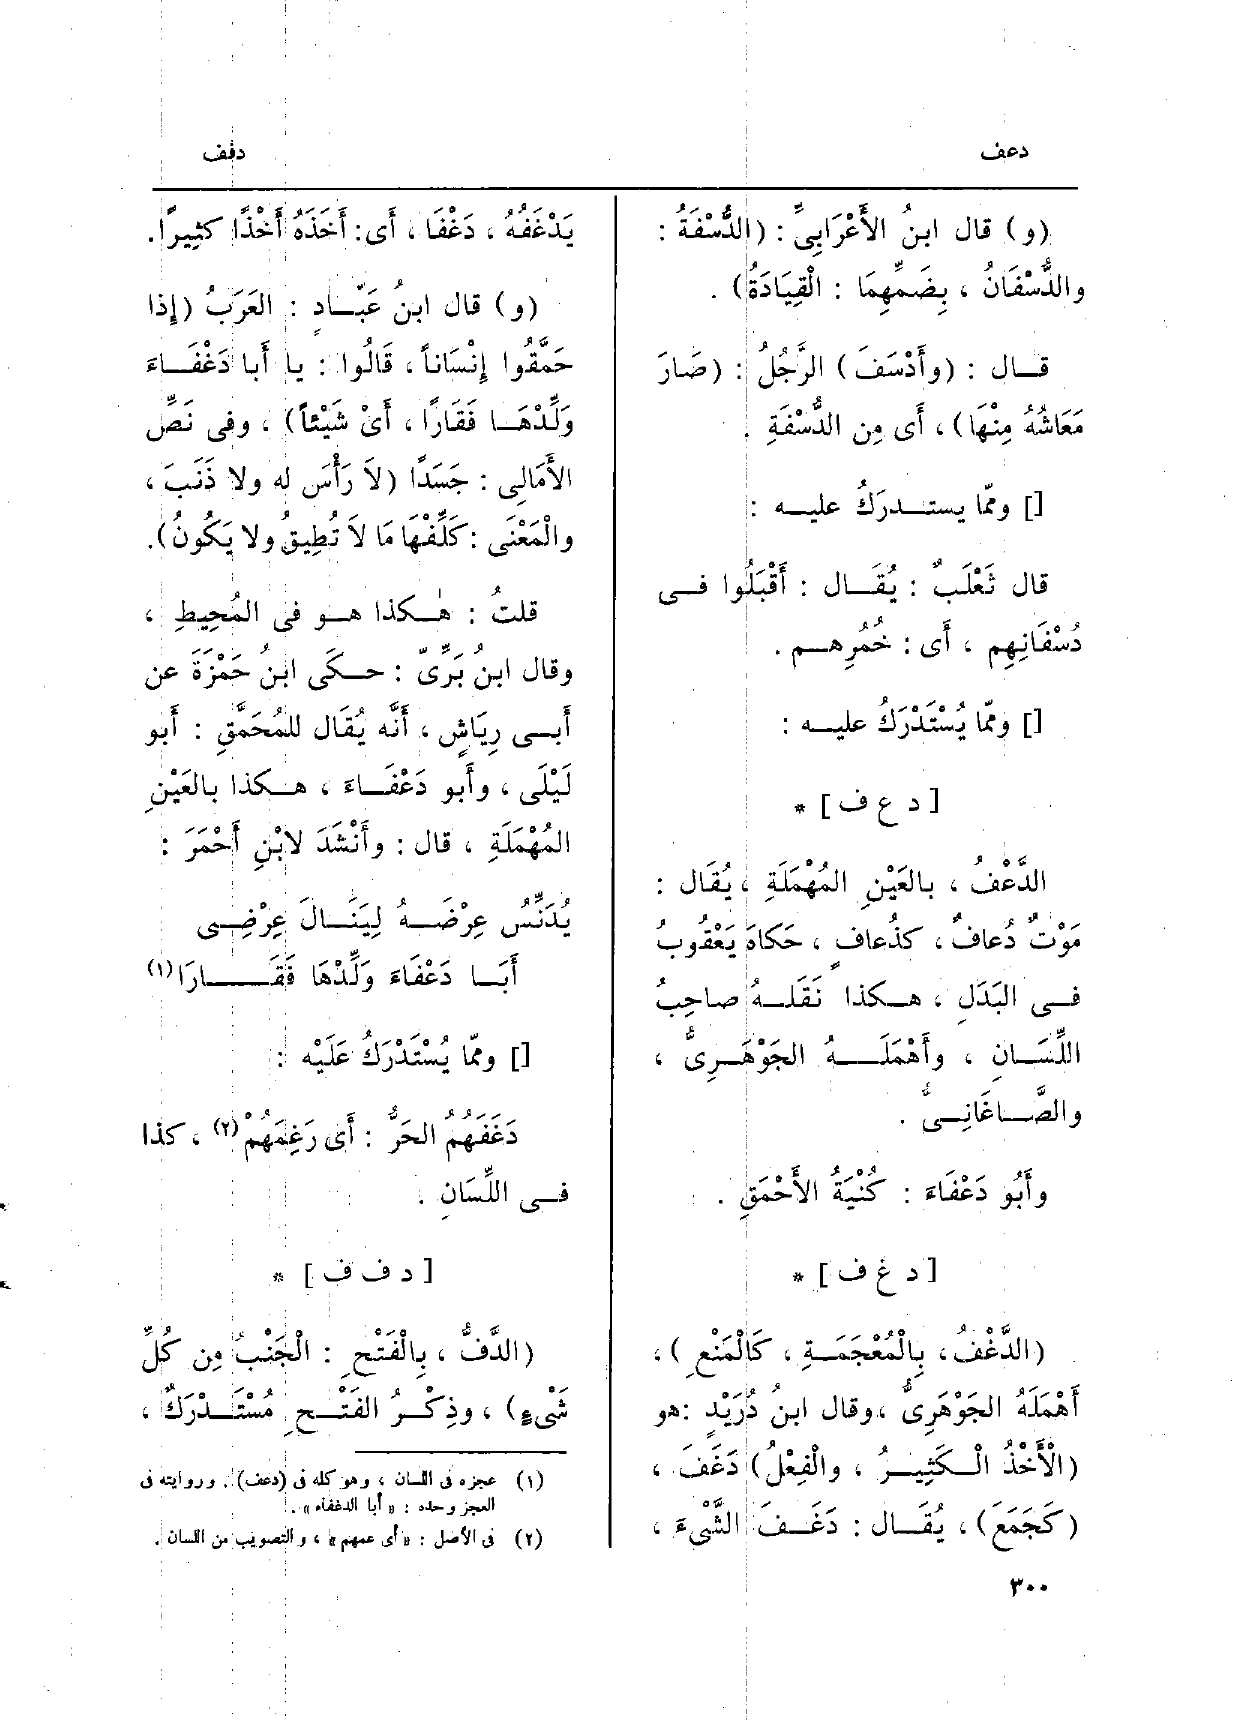 دعف
دفف
(و) قال ابنُ الأَعْرَابِيِّ : (الدُّسْفَةُ :
والدُّسْفَانُ ، بِضَمِّهِمَا : الْقِيَادَةُ) .
قـال : (وأَدْسَفَ) الرَّجُلُ : (صَارَ
مَعَاشُهُ مِنْهَا) ، أَى مِن الدُّسْفَةِ .
[] ومّا يستـدرَكُ عليـه :
قال ثَعْلَبٌ : يُقَـال : أَقْبَلُوا فـى
دُسْفَانِهِم ، أَى : خُمُرِهـم .
[] ومّا يُسْتَدْرَكُ عليـه :
[ د ع ف ] *
الدَّعْفُ ، بالعَيْنِ المُهْمَلَةِ ، يُقَال :
مَوْتٌ دُعافٌ ، كذُعافٍ ، حَكاهَ يَعْقُوبُ
فـى البَدَلِ ، هـكذا نَقَلـهُ صاحِبُ
اللِّسَـانِ ، وأَهْمَلَـــهُ الجَوْهَـرِىُّ ،
والصَّـاغَانِـىُّ .
وأَبُو دَعْفَاءَ : كُنْيَةُ الأَحْمَقِ .
[ د غ ف ] *
(الدَّغْفُ، بِالْمُعْجَمَـةِ ، كَالْمَنْعِ) ،
أَهْمَلَهُ الجَوْهَرِىُّ ، وقال ابنُ دُرَيْدٍ : هو
(الْأَخْذُ الْـكَثِيـرُ ، والْفِعْلُ) دَغَفَ ،
(كَجَمَعَ) ، يُقَـال : دَغَـفَ الشَّىْءَ ،
يَدْغَفُهُ ، دَغْفَا ، أَى : أَخَذَهُ أَخْذًا كَثِيرًا.
(و) قال ابنُ عَبَّـادٍ : العَرَبُ (إِذا
حَمَّقُوا إِنْسَاناً ، قَالُوا : يا أَبا دَغْفَـاءَ
وَلِّدْهَـا فَقَارًا ، أَىْ شَيْئاً) ، وفى نَصِّ
الأَمَالِى : جَسَدًا (لاَ رَأْسَ له ولا ذَنَبَ ،
والْمَعْنَى : كَلِّفْهَا مَا لاَ تُطِيقُ ولا يَكُونُ).
قلتُ : هٰـكذا هـو فى المُحِيطِ ،
وقال ابنُ بَرِّىّ : حـكَى ابنُ حَمْزَةَ عن
أَبـى رِيَاشٍ ، أَنَّه يُقَال للمُحَمَّقِ : أَبو
لَيْلَى ، وأَبو دَعْفَـاءَ ، هـكذا بالعَيْنِ
المُهْمَلَةِ ، قال : وأَنْشَدَ لابْنِ أَحْمَرَ :
يُدَنِّسُ عِرْضَـهُ لِيَنَـالَ عِرْضِـى
أَبَـا دَعْفَاءَ وَلِّدْهَا فَقَــــارَا(١)
[] ومّا يُسْتَدْرَكُ عَلَيْه :
دَغَفَهُم الحَرُّ : أَى رَغِمَهُمْ(٢) ، كذا
فـى اللِّسَانِ .
[ د ف ف ] *
(الدَّفُّ ، بِالْفَتْحِ : الْجَنْبُ مِن كُلِّ
شَىْءٍ) ، وذِكْـرُ الفَتْـحِ مُسْتَـدْرَكٌ ،
(١) عجزه فى اللسان ، وهو كله فى (دعف) . وروايته فى
العجز وحده : « أبا الدغفاء » .
(٢) فى الأصل : « أى عمهم » ، والتصويب من اللسان .
٣٠٠